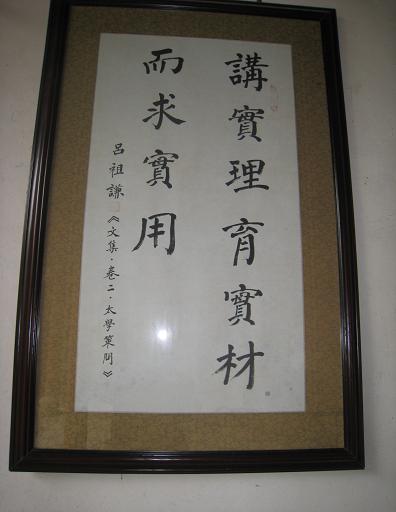 講實理育實材
而求實用
呂祖謙《文集·卷二·太學策問》